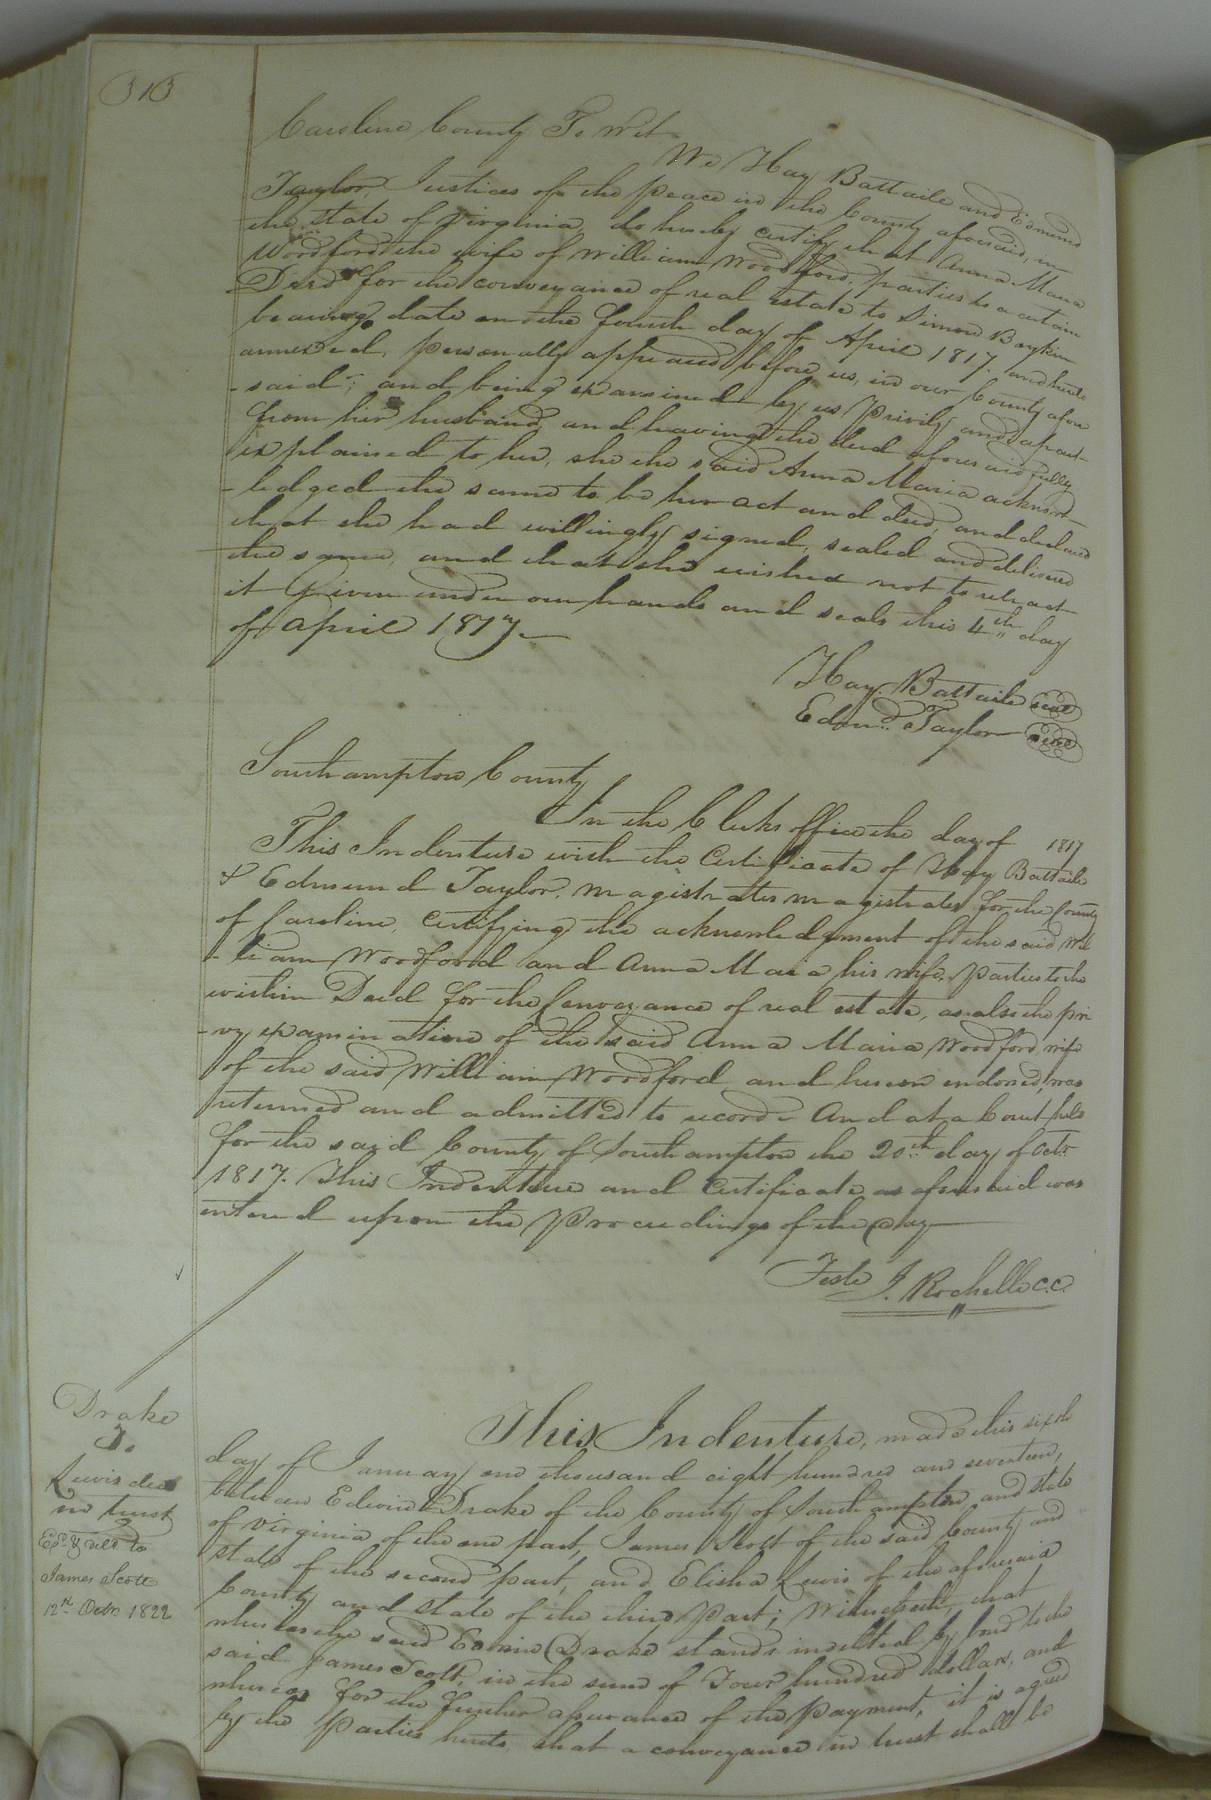 313
Caroline County To Wit
We Hay Battaile and Edmund
Taylor, Justices of the peace in the County aforesaid, in
the state of Virginia, do hereby certify that Anna Maria
Woodford the wife of William Woodford, parties to a certain
Deed for the conveyance of real estate to Simon Boykin
bearing date on the fourth day of April 1817. and hereto
annexed, personally appeared before us, in our County afore
-said, and being examined by us privily and apart
from her husband, and having the deed aforesaid fully
explained to her, she the said Anna Maria acknow-
-ledged the same to be her act and deed, and declared
that she had willingly signed, sealed and delivered
the same, and that she wished not to retract
it Given under our hands and seals this 4th day
of April 1817.
Hay. Battaile seal
Edmd. Taylor seal
Southampton County
In the Clerks office the day of 1817
This Indenture with the Certificate of Hay Battaile
& Edmund Taylor, magistrates magistrates for the County
of Caroline, Certifying the acknowledgment of the said Wil
-liam Woodford and Anna Maria his wife, Parties to the
within Deed for the Conveyance of real estate, as also the pri
-vy examination of the said Anna Maria Woodford wife
of the said William Woodford and hereon endorsed, was
returned and admitted to record. And at a Court held
for the said County of Southampton the 20th day of Octr
1817. This Indenture and Certificate as aforesaid was
entered upon the Proceedings of the day
Teste J. Rochelle C.C.
Drake
To
Lewis deed
in trust
Exd. & deld to
James Scott
12th Octr 1822
This Indenture, made this sixth
day of January one thousand eight hundred and seventeen,
between Edwin Drake of the County of Southampton and state
of Virginia of the one part, James Scott of the said County and
state of the second part, and Elisha Lewis of the aforesaid
County and state of the third Part; Witnesseth, that
whereas the said Edwin Drake stands indebted by bond to the
said James Scott, in the sum of Four hundred dollars, and
whereas for the further assurance of the payment, it is agreed
by the Parties hereto that a conveyance in trust shall be